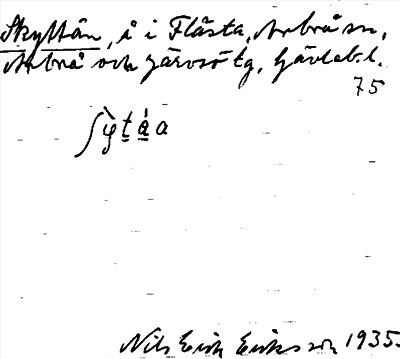 Skyttån, å i Flästa, Arbrå sn,
Arbrå och Järvsö tg, Gävleb.l.
75
ʃỳt̲á̲a
Nils Erik Eriksson 1935.